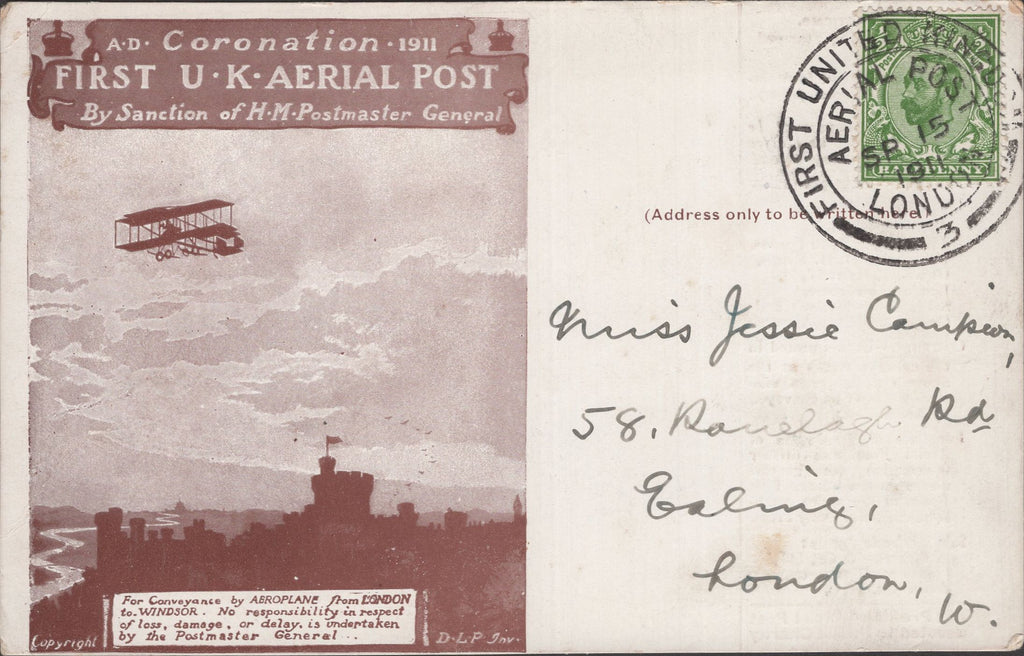 A·D· Coronation · 1911
FIRST U·K·AERIAL POST
By Sanction of H·M·Postmaster General
For Conveyance by AEROPLANE from LONDON
to WINDSOR. No responsibility in respect
of loss, damage, or delay, is undertaken
by the Postmaster General ..
Copyright
D·L·P Inv.
FIRST UNITED KINGDOM
AERIAL POST
SP 15
1911
LONDON
3
HALFPENNY
(Address only to be written here)
Miss Jessie Campion,
58, Ranelagh Rd
Ealing,
London, W.